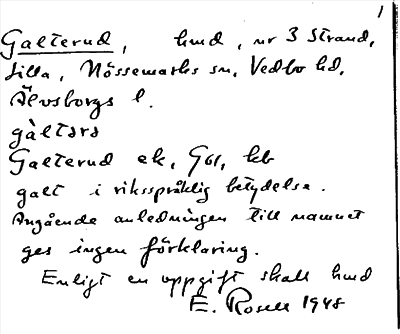 1
Galterud, hmd, nr 3 Strand,
Lilla, Nössemarks sn, Vedbo hd,
Älvsborgs l.
gàltərə
Galterud ek, Gst, kb
galt i riksspråklig betydelse.
Angående anledningen till namnet
ges ingen förklaring.
Enligt en uppgift skall hmd
E. Rosell 1948